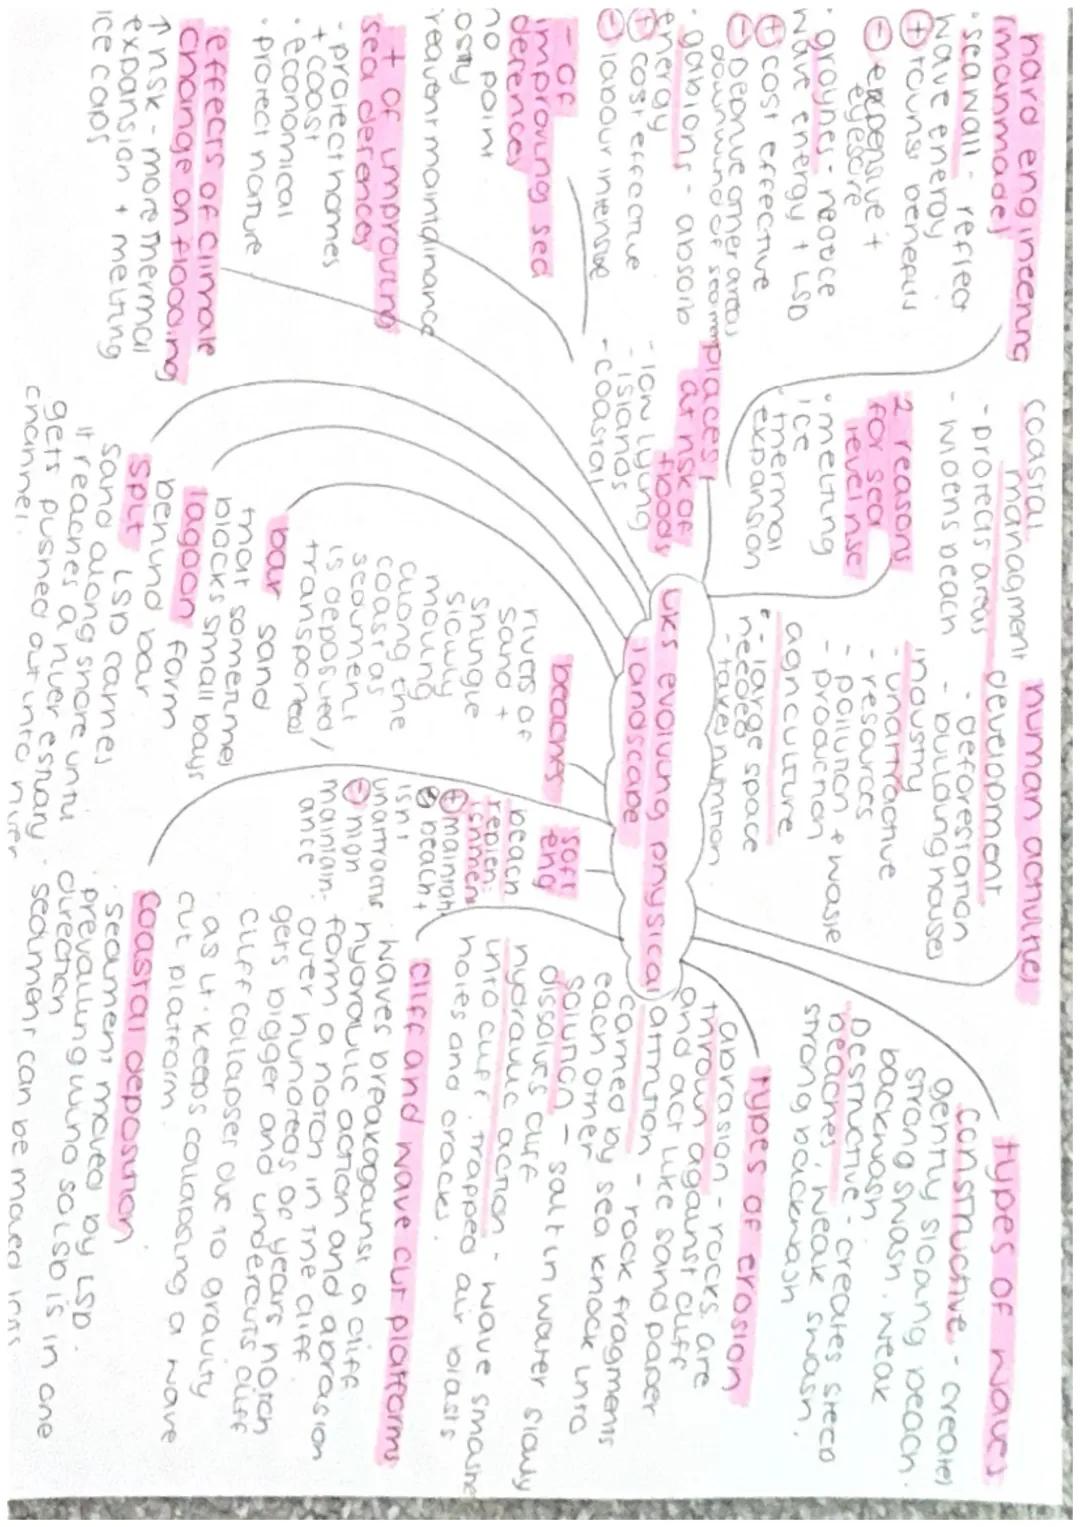 UKs evolving physical
landscape
hard engineering
(manmade)
· seawall - reflect
wave energy
+ tourist benefits
- expensive +
eyesore
· groynes - reduce
wave energy + LSD
+ cost effective
- deprive other areas
downwind of sediment
· gabions - absorb
energy
+ cost effective
- labour intensive
- of
improving sea
defences
no point
costly
+ of improving
sea defences
· protect homes
+ coast
· economical
· protect nature
effects of climate
change on flooding
↑ risk - more thermal
expansion + melting
ice caps
coastal
managment
- protects areas
- widens beach
2 reasons
for sea
level rise
· melting
ice
· thermal
expansion
places
at risk of
floods
- low lying
- islands
- coastal
human activities
development
· deforestation
- building houses
industry
- unattractive
- resources
- pollution + waste
- production
agriculture
- large space
needed
- takes nutrition
beaches
rivers of
sand +
shingle
slowly
moving
along the
coast as
sediment
is deposited/
transported
bar sand
that sometimes
blocks small bays
lagoon form
behind bar
spit LSD carries
sand along shore until
it reaches a river estuary
gets pushed out into river
channel.
soft
eng
beach
replen-
ishment
beach +
isnt
- high
maintain-
ance
types of waves
constructive - creates
gently sloping beach.
strong swash. weak
backwash.
Destructive - creates steep
beaches, weak swash.
strong backwash
types of erosion
abrasion - rocks are
thrown against cliff
and act like sand paper
attrition - rock fragments
carried by sea knock into
each other
solution - salt in water slowly
dissolves cliff
hydraulic action - wave smashes
into cliff. trapped air blasts
holes and cracks.
cliff and wave cut platforms
· waves break against a cliff
hydraulic action and abrasion
form a notch in the cliff
over hundreds of years notch
gets bigger and undercuts cliff
cliff collapses due to gravity
as it keeps collapsing a wave
cut platform.
coastal deposition
· sediment moved by LSD.
· prevailing wind so LSD is in one
direction
· sediment can be moved